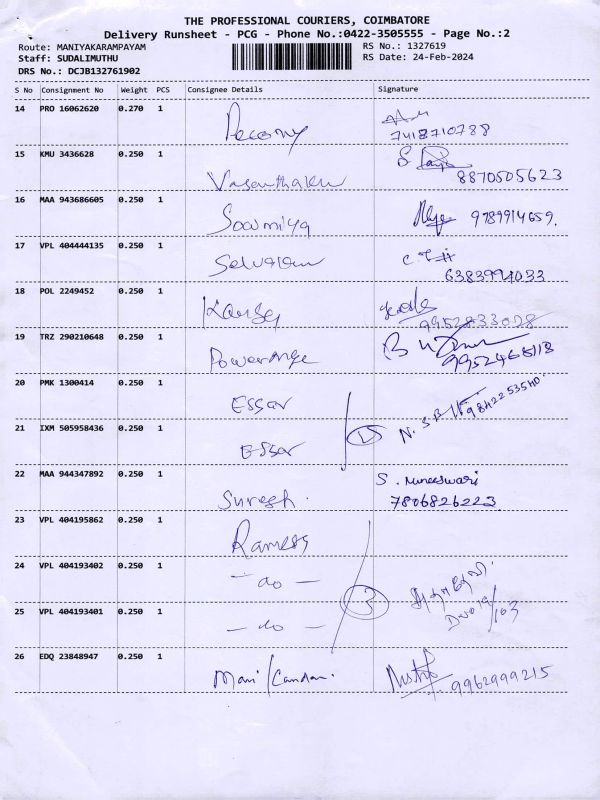 THE PROFESSIONAL COURIERS, COIMBATORE
Delivery Runsheet - PCG - Phone No.:0422-3505555 - Page No.:2
Route: MANIYAKARAMPAYAM RS No.: 1327619
Staff: SUDALIMUTHU RS Date: 24-Feb-2024
DRS No.: DCJB132761902
S No Consignment No Weight PCS Consignee Details Signature
14 PRO 16062620 0.270 1
7418710788
15 KMU 3436628 0.250 1 S
Vasanthakumar 8870505623
16 MAA 943686605 0.250 1
Sowmiya 9789914659.
17 VPL 404444135 0.250 1
Selvakumar 6383994033
18 POL 2249452 0.250 1
9952833028
19 TRZ 290210648 0.250 1 B
9952465113
20 PMK 1300414 0.250 1
Essar N. S.B 9842253540
21 IXM 505958436 0.250 1
Essar
22 MAA 944347892 0.250 1 S. Muneeswari
Suresh. 7806826223
23 VPL 404195862 0.250 1
Ramesh
24 VPL 404193402 0.250 1
— do — 3
25 VPL 404193401 0.250 1
— do —
26 EDQ 23848947 0.250 1
Mani 9962999215